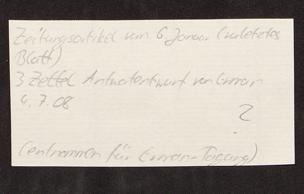 Zeitungsartikel vom 6. Januar (vorletztes
Blatt)
3 Zettel Antwortentwurf von
4.7.08
?
(entnommen für -Tagung)